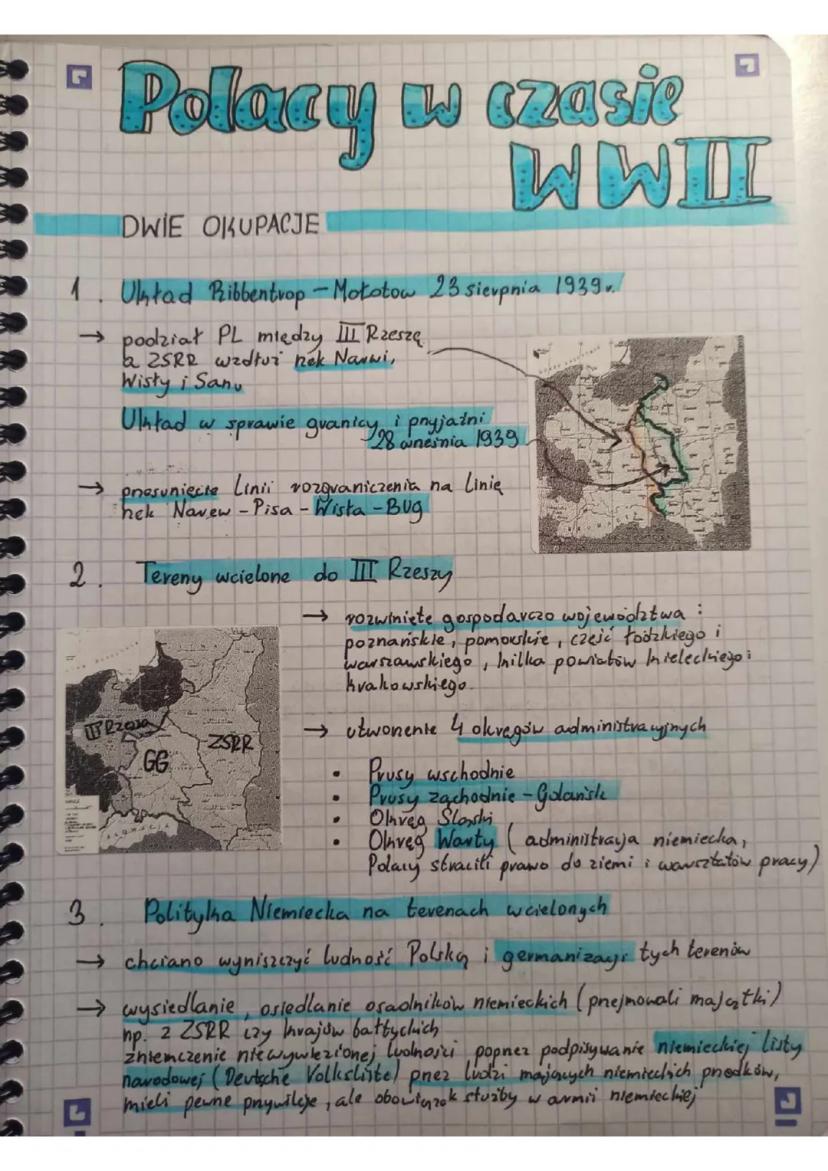 Polacy w czasie
WWII
DWIE OKUPACJE
1. Układ Ribbentrop - Mołotow 23 sierpnia 1939r.
→ podział PL między III Rzeszę
a ZSRR wzdłuż rzek Narwi,
Wisły i Sanu
Układ w sprawie granicy i przyjaźni
28 września 1939
→ przesunięcie Linii rozgraniczenia na Linię
rzek Narew - Pisa - Wisła - Bug
2. Tereny wcielone do III Rzeszy
→ rozwinięte gospodarczo województwa:
poznańskie, pomorskie, część łódzkiego i
warszawskiego, kilka powiatów kieleckiego i
krakowskiego.
III Rzesza
GG
ZSRR
→ utworzenie 4 okręgów administracyjnych
• Prusy wschodnie
• Prusy zachodnie - Gdańsk
• Okręg Śląski
• Okręg Warty (administracja niemiecka,
Polacy stracili prawo do ziemi i warsztatów pracy)
3. Polityka Niemiecka na terenach wcielonych
→ chciano wyniszczyć ludność Polską i germanizacji tych terenów
→ wysiedlanie, osiedlanie osadników niemieckich (przejmowali majątki)
np. z ZSRR czy krajów bałtyckich
zniemczenie niewywiezionej ludności poprzez podpisywanie niemieckiej listy
narodowej (Deutsche Volksliste) przez ludzi mających niemieckich przodków,
mieli pewne przywileje, ale obowiązek służby w armii niemieckiej